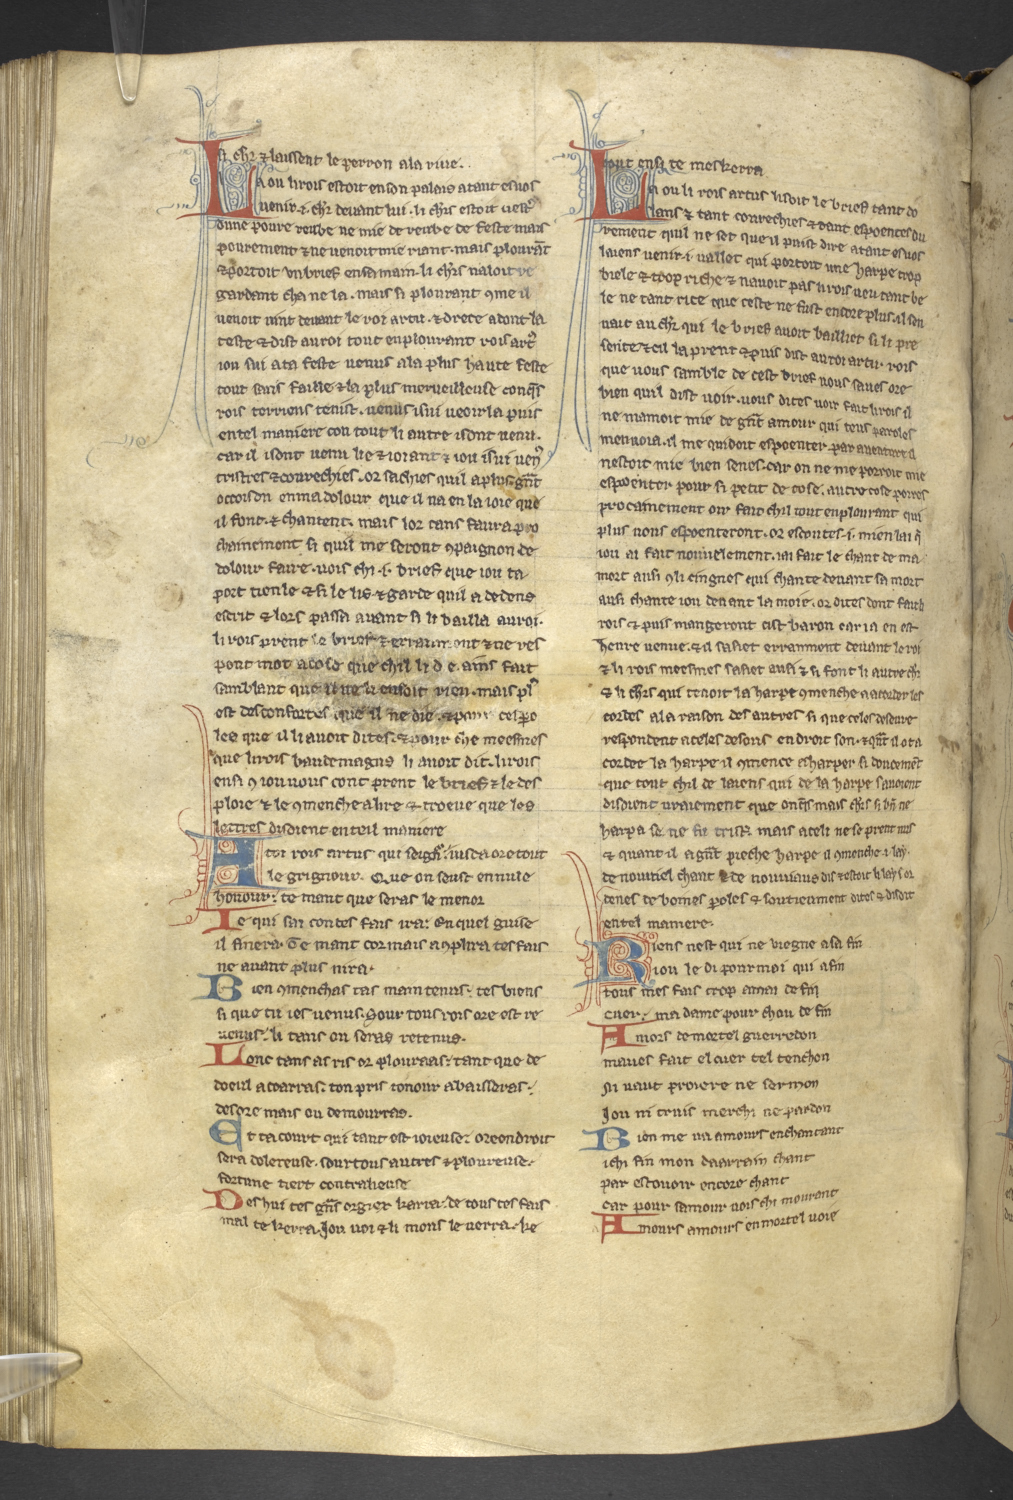 si ch̄r ⁊ laissent le perron a la riue.
La ou li rois estoit en son palais atant es uos
uenir .i. ch̄r deuant lui . li ch̄rs estoit uestꝰ
dune poure reube ne mie de reube de feste mais
pourement ⁊ ne uenoit mie riant . mais plourāt
⁊ portoit un brief en sa main . li ch̄rs naloit re
gardant cha ne la . mais si plourant ꝯme il
uenoit uint deuant le roi artu . ⁊ drece adont la
teste ⁊ dist au roi tout en plourant rois artꝰ
iou sui a ta feste uenus a la plus haute feste
tout sans faille ⁊ la plus merueilleuse conq̄s
rois terriens tenist . uenus i sui ueoir la puis
en tel maniere con tout li autre i sont uenu .
car il i sont uenu lie ⁊ ioiant ⁊ iou i sui uenꝰ
tristres ⁊ courechies . or sachies quil a plus gn̄t
occoison en ma dolour que il na en la ioie que
il font . ⁊ chantent . mais lor cans faura pro
chainement si quil me seront ꝯpaignon de
dolour faire . uois chi .i. brief que iou ta
port tien le ⁊ si le lis ⁊ garde quil a dedens
escrit ⁊ lors passa auant si li bailla au roi .
li rois prent le brief ⁊ erraumont ⁊ ne res
pont mot a cose que chil li die . ains fait
samblant que il ne li ensoit rien . mais plꝰ
est desconfortes que il ne die . ⁊ pour ces paro
les que il li auoit dites . ⁊ pour che meesmes
que li rois baudemagus li auoit dit . li rois
ensi ꝯ iou uous cont prent le brief ⁊ le des
ploie ⁊ le ꝯmenche a lire ⁊ troeue que les
lettres disoient en teil maniere
A toi rois artus qui seignꝰ . iusca ore tout
le grignour . Que on seust en nule
honour : te mant que seras le menor
Ie qui sai con tes fais ira : En quel guise
il finera . Te mant cor mais aꝯplira tes fais
ne auant plus nira .
Bien ꝯmenchas tas maintenus : tes biens
si que tu ies uenus . Sour tous rois ore est re
uenus : li tans ou seras retenus .
Lonc tans as ris or plouraas : tant que de
doeul acoarras : ton pris tonour abaisseras :
desore mais ou demourras .
Et ta court qui tant est ioieuse : ore on droit
sera dolereuse . sour tous autres ⁊ ploureuse .
fortune tiert contralieuse
Des hui tes gn̄s orgiex karra . de tous tes fais
mal te kerra . Iou uoi ⁊ li mons le uerra . ke
tout ensi te meskerra
La ou li rois artus lisoit le brief tant do
lans ⁊ tant courechies ⁊ tant espoentes du
rement quil ne set que il puist dire atant es uos
laiens uenir .i. uallet qui portoit une harpe trop
biele ⁊ trop riche ⁊ nauoit pas li rois ueu tant be
le ne tant rice que ceste ne fust encore plus . il sen
uait au ch̄r qui le brief auoit bailliet si li pre
sente ⁊ cil la prent ⁊ puis dist au roi artu . rois
que uous samble de cest brief uous saues ore
bien quil dist uoir . uous dites uoir fait li rois il
ne mamoit mie de gn̄t amour qui teus paroles
menuoia . il me quidoit espoenter par auenture il
nestoit mie bien senes . car on ne me porroit mie
espoenter pour si petit de cose . autre cose porres
procainement oir fait chil tout en plourant qui
plus nous espoenteront . or escoutes .i. mien lai q̄
iou ai fait nouuelement . iai fait le chant de ma
mort ausi ꝯ li cingnes qui chante deuant sa mort
ausi chante iou deuant la moie . or dites dont fait li
rois ⁊ puis mangeront cist baron car ia en est
heure uenue . ⁊ il sasiet erranment deuant le roi
⁊ li rois meesmes sasiet ausi ⁊ si font li autre ch̄r
⁊ li ch̄rs qui tenoit la harpe ꝯmenche a acorder les
cordes a la raison des autres si que celes deseure
respondent a celes desous en droit son . ⁊ qn̄t il ot a
cordre la harpe il ꝯmence a harper si doucemēt
que tout chil de laiens qui de la harpe sauoient
disoient uraiement que onq̄s mais ch̄rs si bn̄ ne
harpa se ne fu trisꝶ . mais a celi ne se prent nus
⁊ quant il a gn̄t pieche harpe il ꝯmenche .i. lay .
de nouuiel chant ⁊ de nouuiaus dis ⁊ estoit li lays or
denes de boines paroles ⁊ soutieument dites ⁊ disoit
en tel maniere .
Riens nest qui ne viegne a sa fin
iou le di pour moi qui a fin
tous mes fais trop amai de fin
cuer . ma dame pour chou de fin
Amors de mortel guerredon
maues fait el cuer tel tenchon
Ni uaut proiere ne sermon
Iou ni truis merchi ne pardon
Bien me ua amours enchantant
ichi fin mon daarrain chant
par estouoir encore chant
car pour samour uois chi mourant
Amours amours en mortel uoie